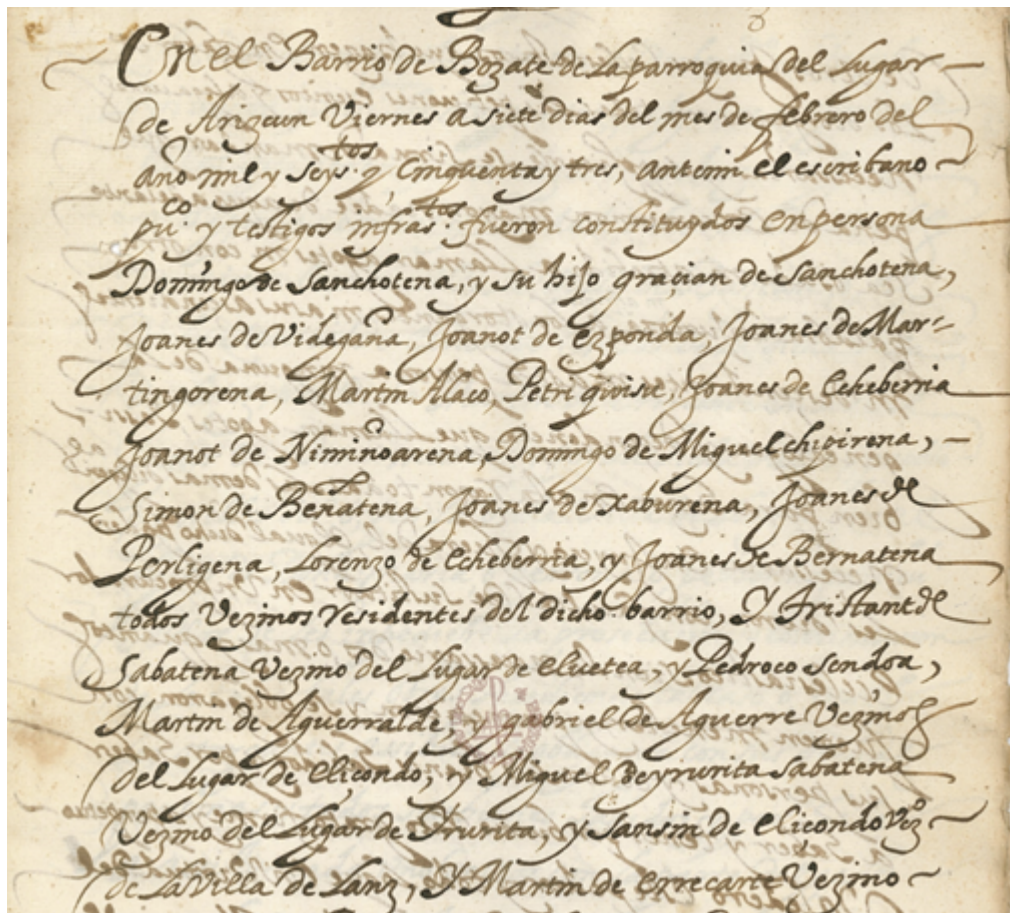 En el Barrio de Bozate de la parroquia del Lugar
de Arizcun Viernes a siete dias del mes de febrero del
año mil y seys.tos y cinquenta y tres, ante mi el escribano
pu.co y testigos infras.tos fueron constituydos en persona
Domingo de Sanchotena, y su hijo graçian de Sanchotena,
Joanes de Videgaña, Joanot de Ezponda, Joanes de Mar-
tingorena, Martin Alaco, Petri, Joanes de Echeberria
Joanot de Niminoarena, Domingo de Miguelchipirena,
Simon de Benatena, Joanes de Xaburena, Joanes de
Perligena, Lorenzo de Echeberria, y Joanes de Bernatena
todos Vezinos residentes del dicho barrio, Y Tristant de
Sabatena Vezino del Lugar de Elvetea, y Pedroco Sendoa,
Martin de Aguerralde, y gabriel de Aguerre Vezinos
del Lugar de Elicondo, y Miguel de yrurita Sabatena
Vezino del Lugar de Yrurita, y Sansin de Elicondo Vezº
de La Villa de Lanz, Y Martin de Errecarte Vezino